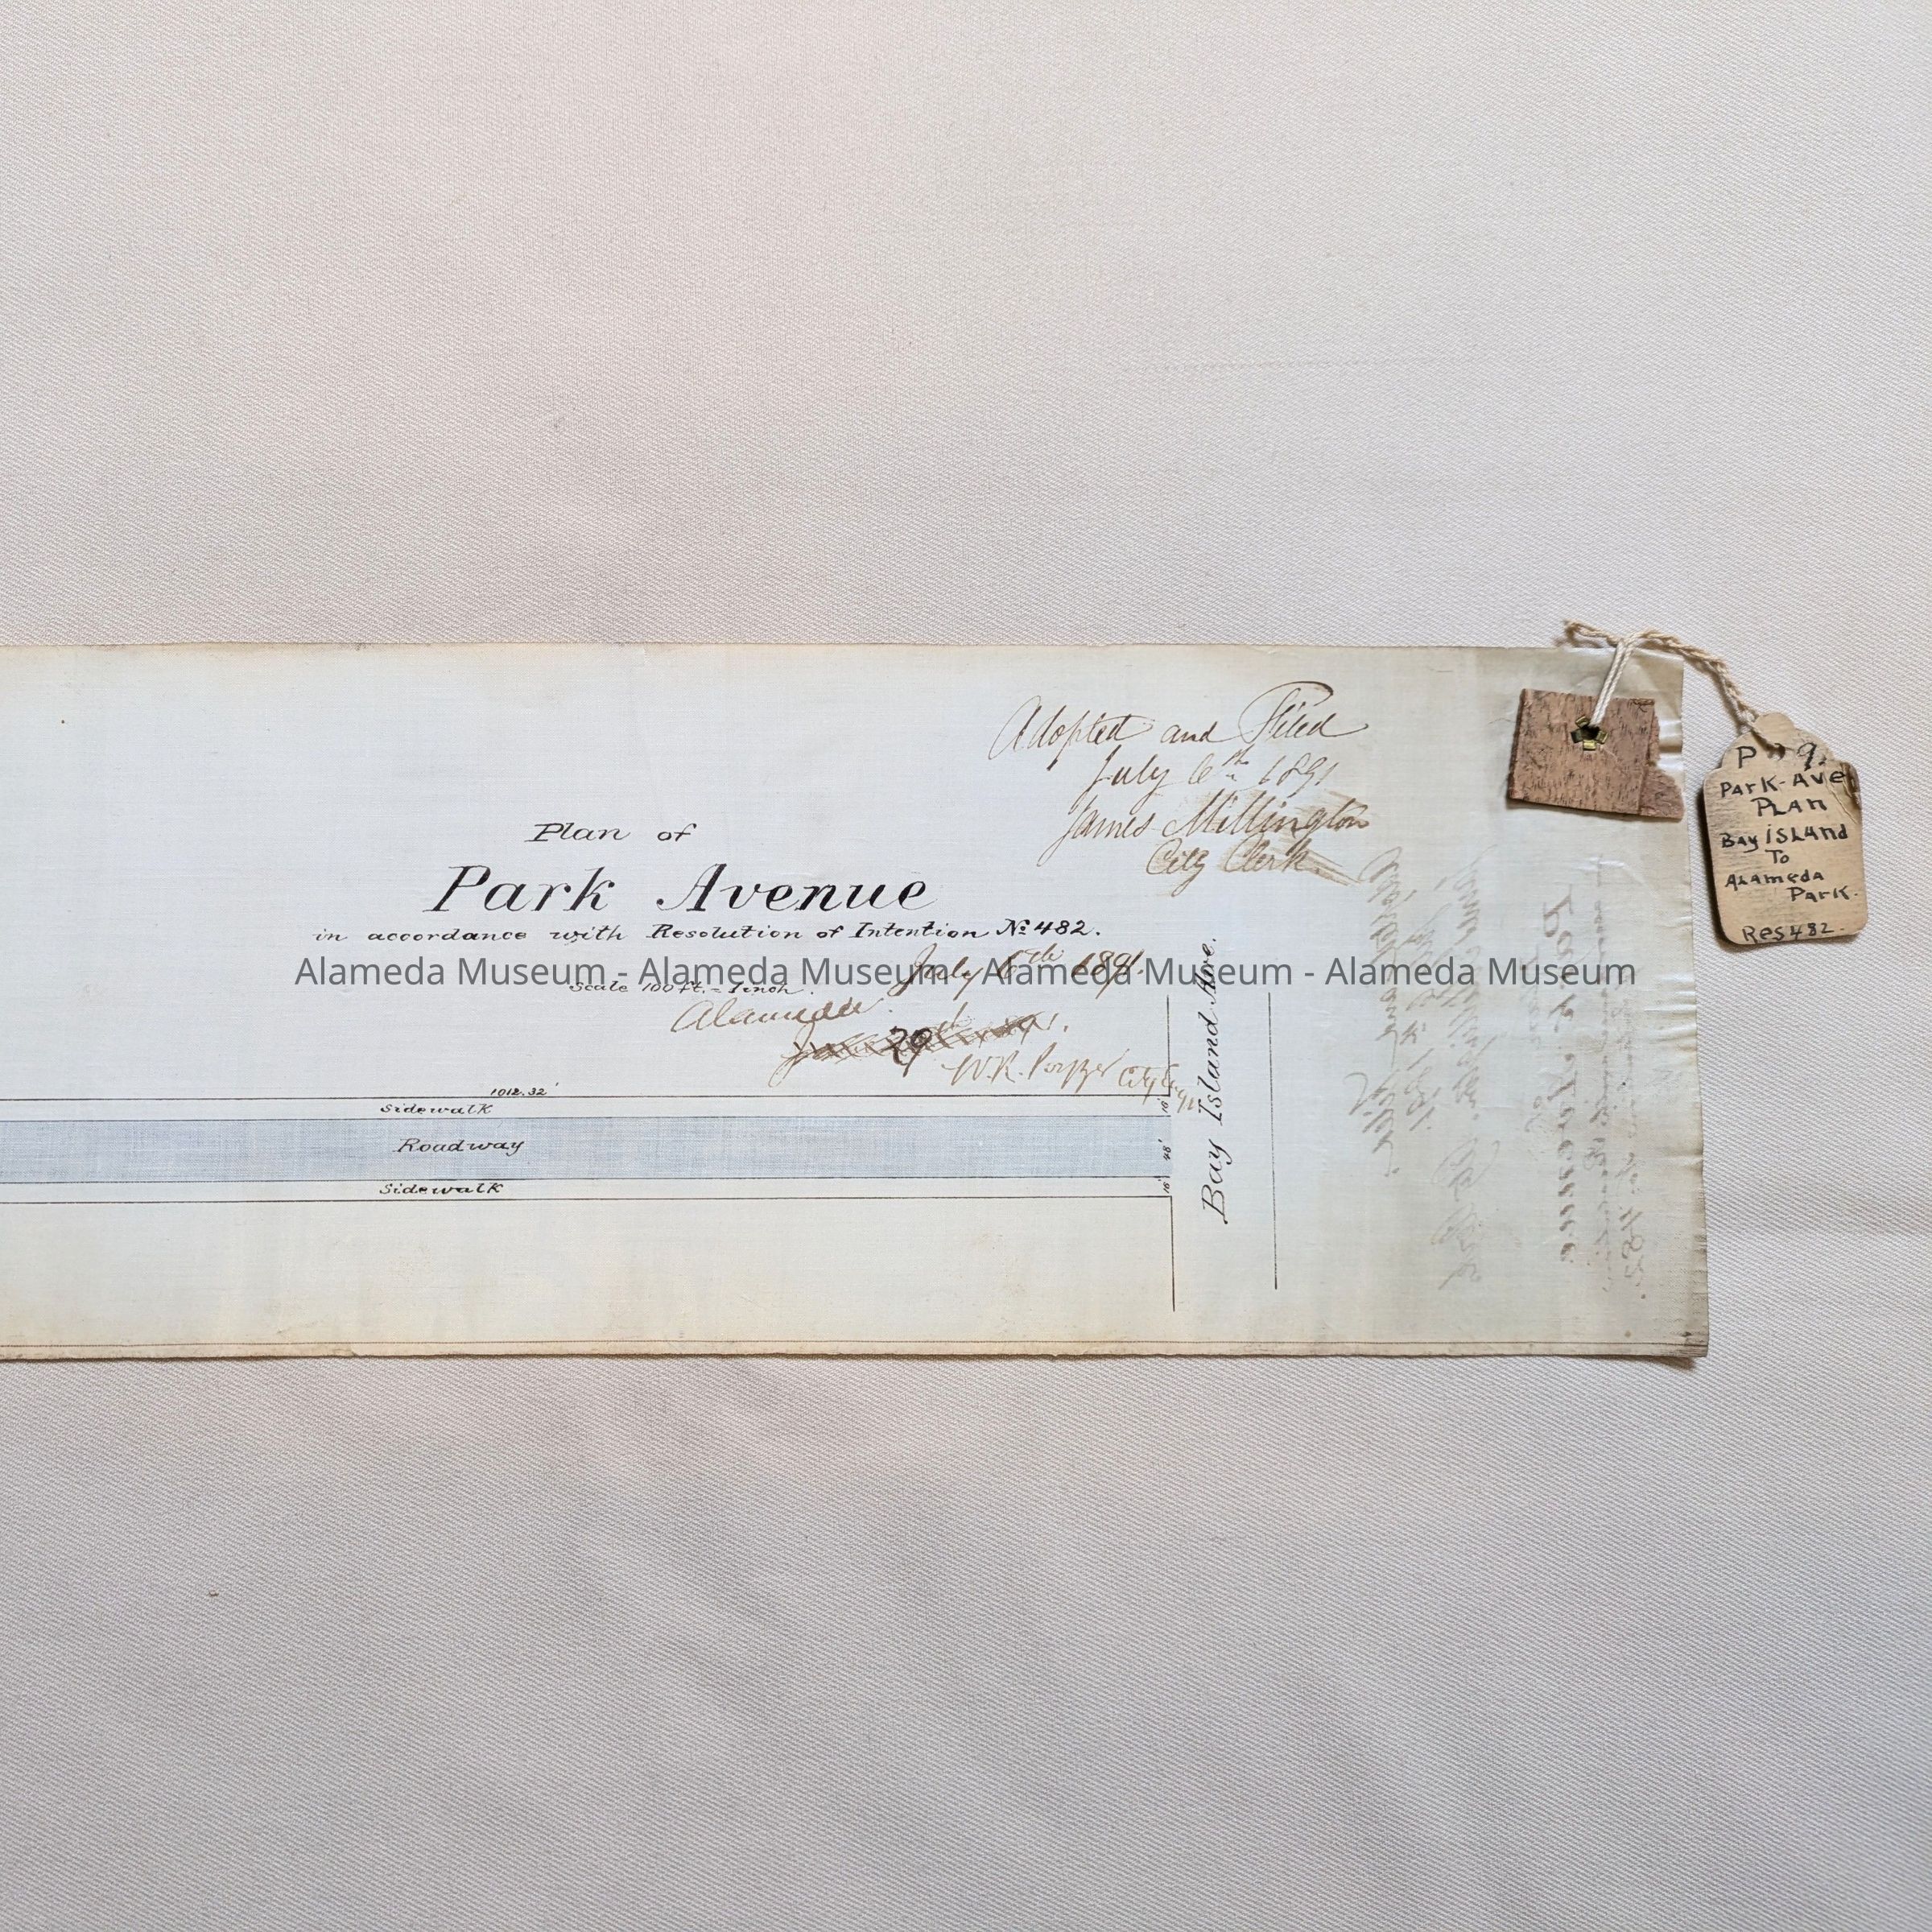 Adopted and Filed
July 6th 1891
James Millington
City Clerk
Plan of
Park Avenue
in accordance with Resolution of Intention No 482.
July 6th 1891.
Scale 100 ft. = 1 inch.
Alameda
29
W.R.
City
1012.32'
Sidewalk
Roadway
Sidewalk
16'
48'
16'
Bay Island Ave.
P 9.
Park-Ave
Plan
Bay island
To
Alameda
Park.
Res 482.
Alameda Museum - Alameda Museum - Alameda Museum - Alameda Museum